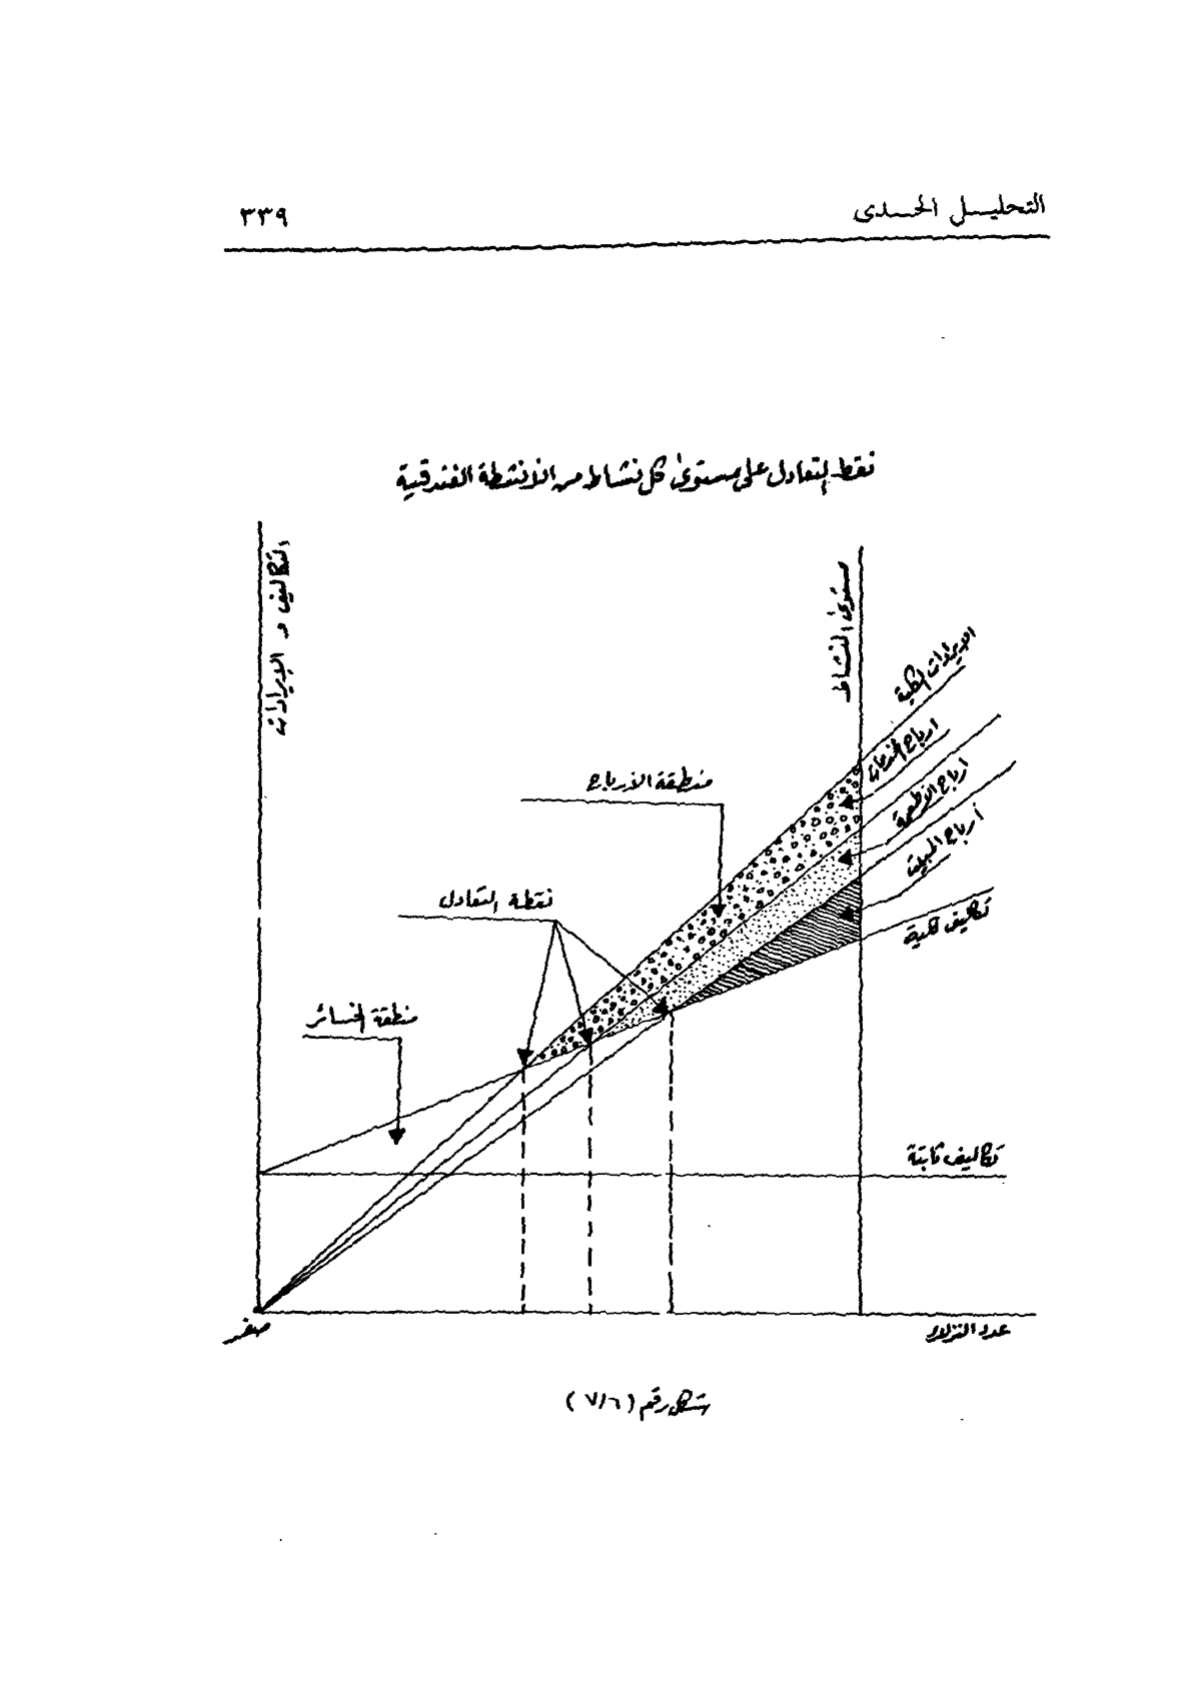 التحليل الحدى
٣٣٩
نقط التعادل على مستوى كل نشاط من الأنشطة الفندقية
التكاليف و الإيرادات
مستوى النشاط
الإيرادات الكلية
أرباح الخدمات
أرباح الأطعمة
أرباح المبيت
تكاليف كلية
منطقة الأرباح
نقطة التعادل
منطقة الخسائر
تكاليف ثابتة
صفر
عدد النزلاء
شكل رقم (٧/٦)